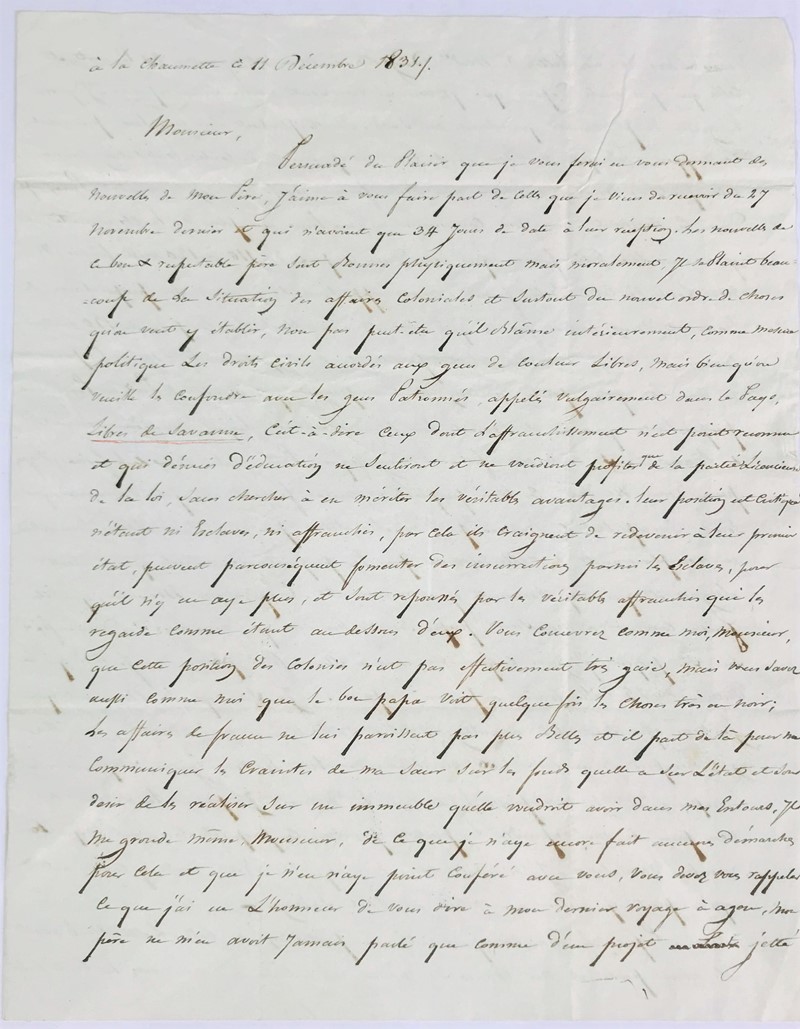 à la Chaumette ce 11 Décembre 1831./.
Monsieur,
Persuadé du Plaisir que je vous ferai en vous donnant des
nouvelles de mon Père, J'aime à vous faire part de Celles que je Viens de recevoir du 27
novembre dernier et qui n'avoient que 34 Jours de date à leur réception. Les nouvelles de
ce bon & respectable père sont Bonnes physiquement mais moralement, Il se Plaint beau-
-coup de La Situation des affaires Coloniales et surtout du nouvel ordre de choses
qu'on veut y établir, non pas peut-être qu'il Blâme intérieurement, comme mesure
politique Les droits Civils accordés aux gens de Couleur Libres, mais bien qu'on
veuille les Confondre avec les gens Patronnés, appelés Vulgairement dans le Pays,
Libres de Savanne, C'est-à-dire Ceux dont L'affranchissement n'est point reconnu
et qui dénués d'éducation ne sentiront et ne voudront profiter que de la partie Licencieuse
de la loi, sans chercher à en mériter les véritables avantages. leur position est Critique
n'étant ni Esclaves, ni affranchis, par cela ils Craignent de redevenir à leur premier
état, peuvent parconséquent fomenter des insurrections parmi les Esclaves, pour
qu'il n'y en aye plus, et sont repoussés par les véritables affranchis qui les
regarde comme étant au dessous d'eux. Vous Conviendrez comme moi, Monsieur,
que cette position des Colonies n'est pas effectivement très gaie, mais vous savez
aussi comme moi que le bon papa voit quelque fois les choses très en noir;
Les affaires de france ne lui paroissent pas plus Belles et il part de là pour me
Communiquer les Craintes de ma sœur sur les fonds quelle a sur L'état et son
désir de les réaliser sur un immeuble qu'elle voudroit avoir dans mes Entours, Il
me gronde même, Monsieur, de ce que je n'aye encore fait aucunes démarches
pour Cela et que je n'en n'aye point Conféré avec vous, vous devez vous rappeler
Ce que j'ai eu L'honneur de vous dire à mon dernier voyage à agen, mon
père ne m'en avoit Jamais parlé que comme d'un projet jetté